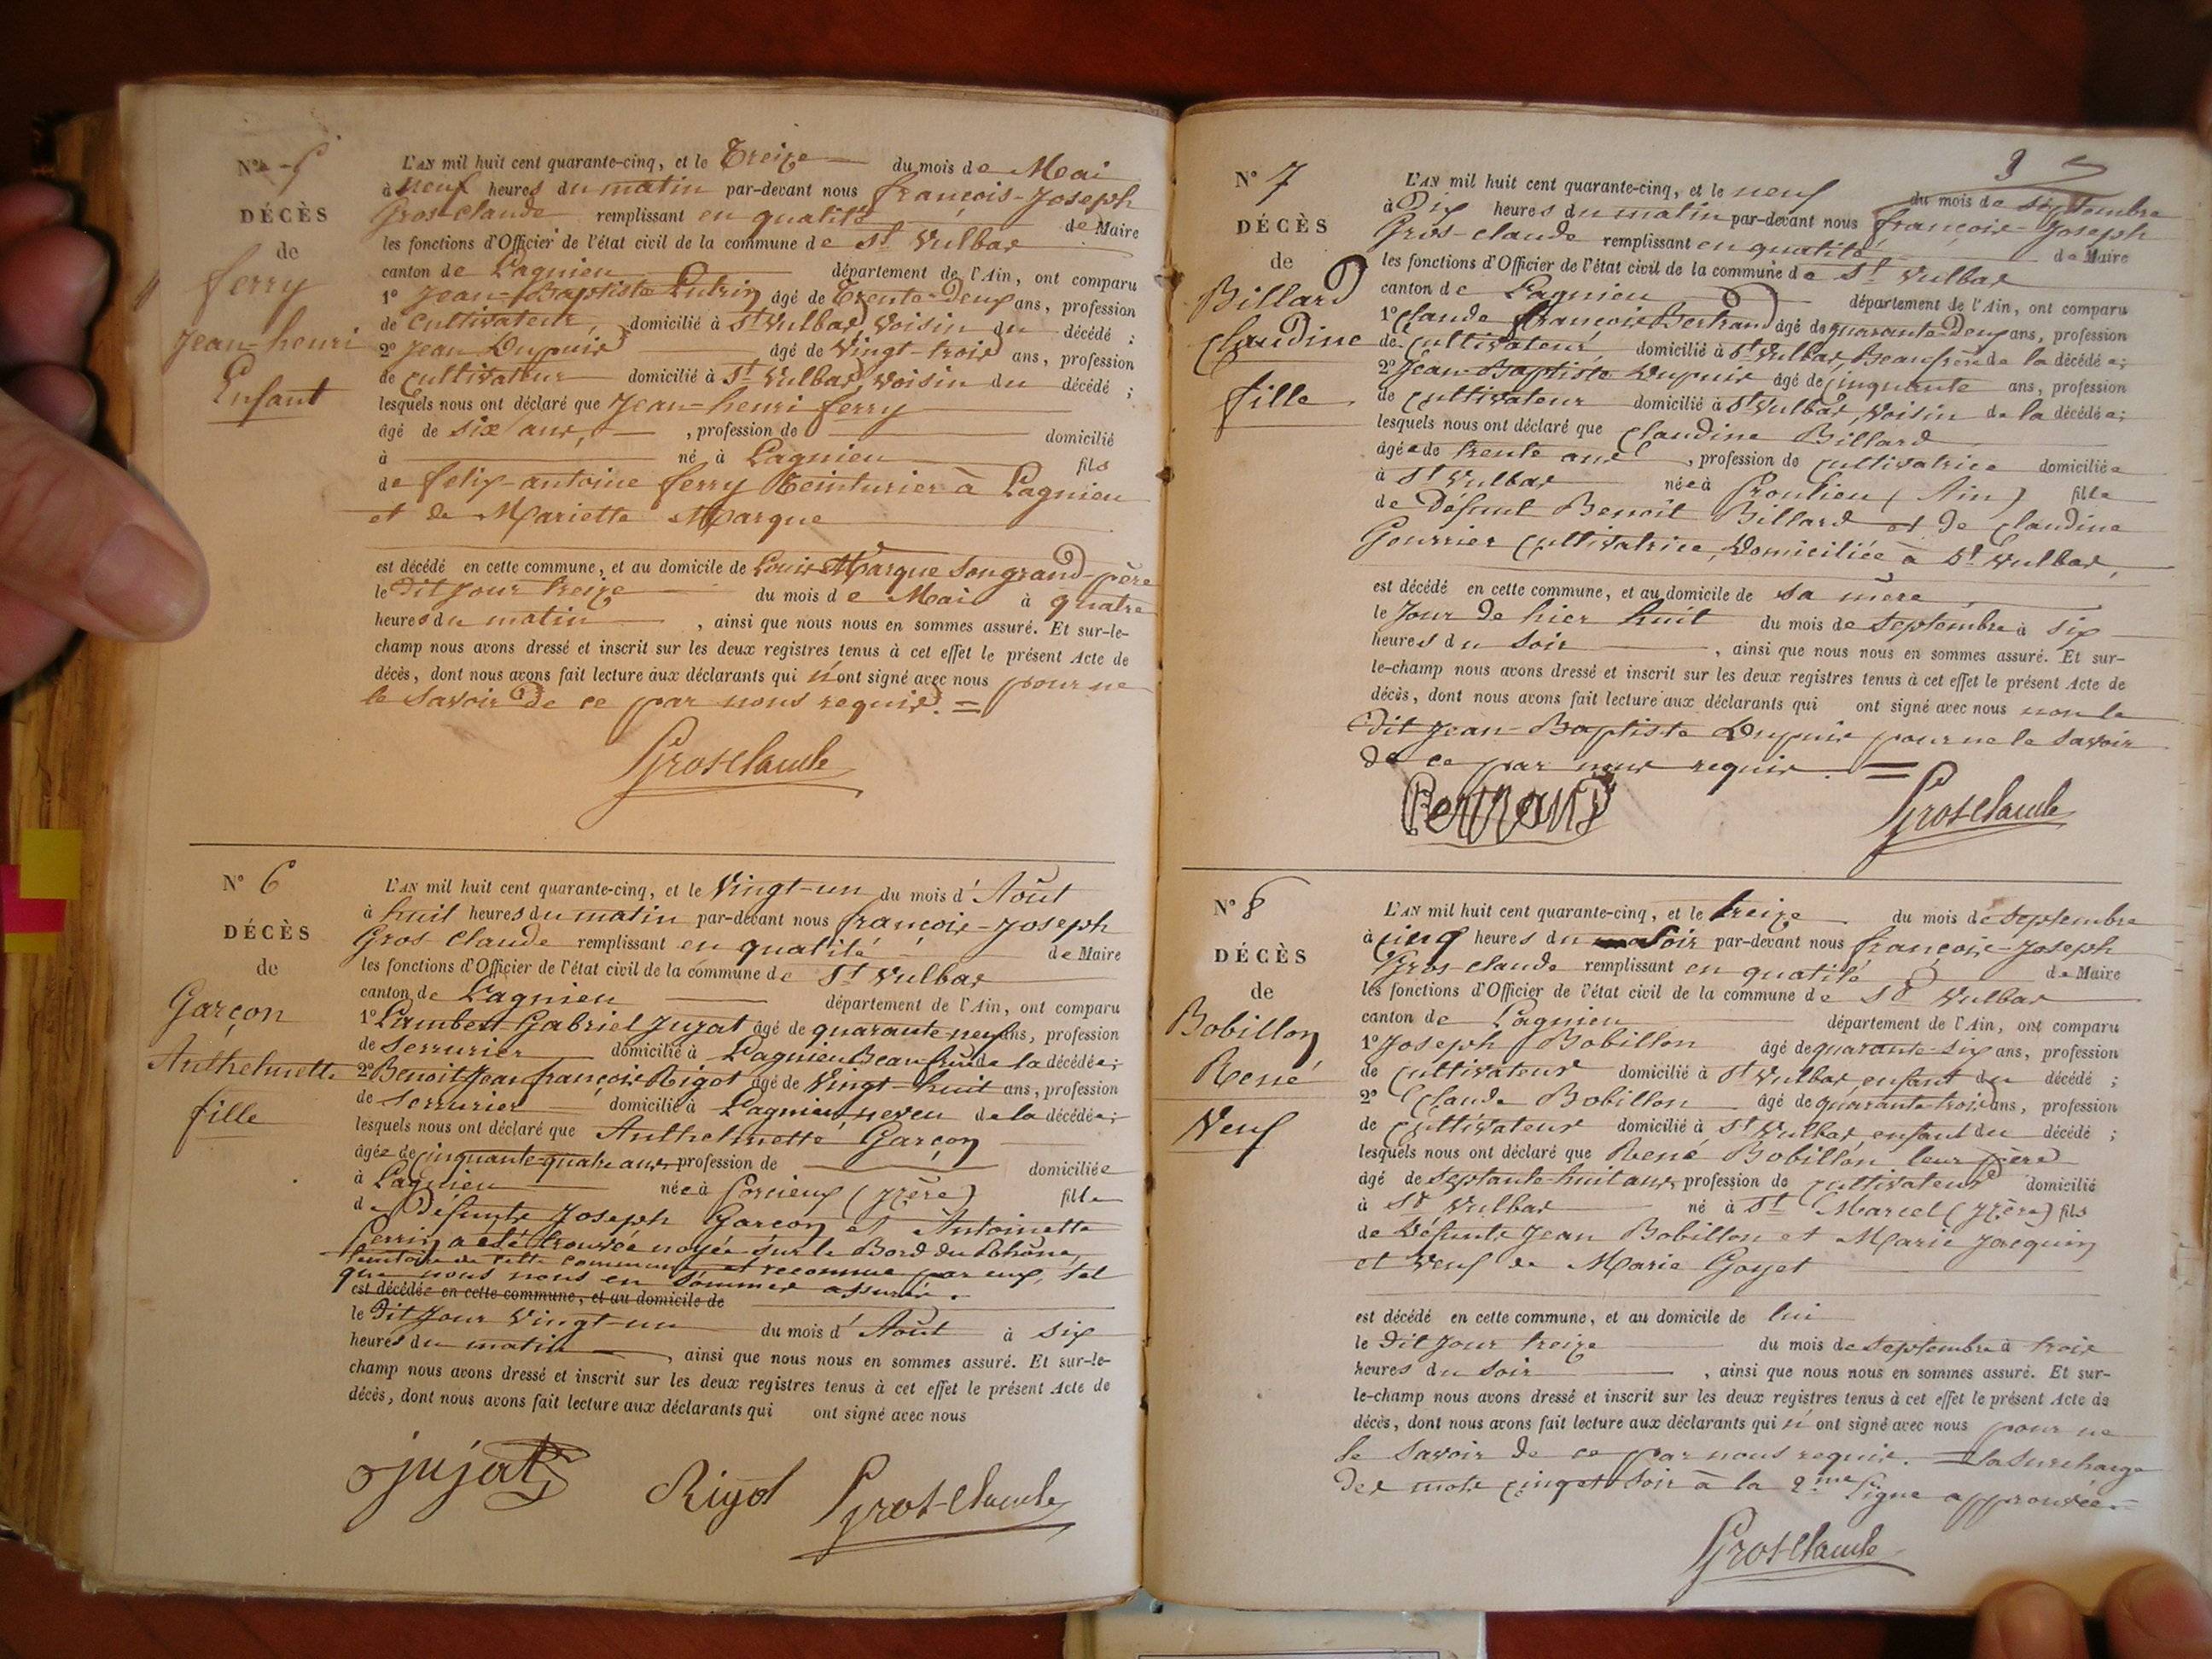 N° 5
DÉCÈS
de
ferry
Jean-henri
Enfant
L'AN mil huit cent quarante-cinq, et le Treize du mois de Mai
à neuf heures du matin par-devant nous françois-Joseph
Gros-claude remplissant en qualité de Maire
les fonctions d'Officier de l'état civil de la commune de St Vulbas
canton de Lagnieu département de l'Ain, ont comparu
1° Jean-Baptiste Lutrin âgé de Trente-Deux ans, profession
de cultivateur, domicilié à St Vulbas, Voisin du décédé ;
2° Jean Dupuis âgé de Vingt-trois ans, profession
de cultivateur domicilié à St Vulbas, Voisin du décédé ;
lesquels nous ont déclaré que Jean-henri ferry
âgé de six ans, , profession de domicilié
à né à Lagnieu fils
de felix-antoine ferry Teinturier à Lagnieu
et de Mariette Marque
est décédé en cette commune, et au domicile de Louis Marque son grand-père
le Dit Jour treize du mois de Mai à quatre
heures du matin , ainsi que nous nous en sommes assuré. Et sur-le-
champ nous avons dressé et inscrit sur les deux registres tenus à cet effet le présent Acte de
décès, dont nous avons fait lecture aux déclarants qui n'ont signé avec nous pour ne
le savoir De ce par nous requis. =
Grosclaude
N° 6
DÉCÈS
de
Garçon
Anthelmette
fille
L'AN mil huit cent quarante-cinq, et le Vingt-un du mois d'Août
à huit heures du matin par-devant nous françois-Joseph
Gros claude remplissant en qualité de Maire
les fonctions d'Officier de l'état civil de la commune de St Vulbas
canton de Lagnieu département de l'Ain, ont comparu
1° Lambert Gabriel Jujat âgé de quarante-neuf ans, profession
de Serrurier domicilié à Lagnieu Beaufrère de la décédée ;
2° Benoit Jean françois Rigot âgé de Vingt-huit ans, profession
de Serrurier domicilié à Lagnieu neveu de la décédée ;
lesquels nous ont déclaré que Anthelmette Garçon
âgée de cinquante-quatre ans, profession de domiciliée
à Lagnieu née à Porcieux (Isère) fille
de Défunts Joseph Garçon et Antoinette
Perrin a été trouvée noyée sur le Bord du Rhône,
territoire de cette commune et reconnue par eux, tel
que nous nous en sommes assuré.
est décédée en cette commune, et au domicile de
le Dit Jour Vingt-un du mois d'Août à six
heures du matin , ainsi que nous nous en sommes assuré. Et sur-le-
champ nous avons dressé et inscrit sur les deux registres tenus à cet effet le présent Acte de
décès, dont nous avons fait lecture aux déclarants qui ont signé avec nous
jujat Rigot Grosclaude
9
N° 7
DÉCÈS
de
Billard
Claudine
fille
L'AN mil huit cent quarante-cinq, et le neuf du mois de septembre
à Dix heures du matin par-devant nous françois-Joseph
Gros-claude remplissant en qualité de Maire
les fonctions d'Officier de l'état civil de la commune de St Vulbas
canton de Lagnieu département de l'Ain, ont comparu
1° Claude françois Bertrand âgé de quarante-Deux ans, profession
de Cultivateur, domicilié à St Vulbas, Beaufrère de la décédée ;
2° Jean-Baptiste Dupuis âgé de cinquante ans, profession
de cultivateur domicilié à St Vulbas, Voisin de la décédée ;
lesquels nous ont déclaré que Claudine Billard
âgée de trente ans , profession de cultivatrice domiciliée
à St Vulbas née à Proulieu (Ain) fille
de Défunt Benoit Billard et De Claudine
Gourrier Cultivatrice, Domiciliée à St Vulbas,
est décédé en cette commune, et au domicile de sa mère
le Jour De hier huit du mois de Septembre à six
heures du soir , ainsi que nous nous en sommes assuré. Et sur-
le-champ nous avons dressé et inscrit sur les deux registres tenus à cet effet le présent Acte de
décès, dont nous avons fait lecture aux déclarants qui ont signé avec nous non le
Dit Jean-Baptiste Dupuis pour ne le savoir
De ce par nous requis. =
Bertrand Grosclaude
N° 8
DÉCÈS
de
Bobillon
René
Veuf
L'AN mil huit cent quarante-cinq, et le treize du mois de septembre
à cinq heures du soir par-devant nous françois-Joseph
Gros claude remplissant en qualité de Maire
les fonctions d'Officier de l'état civil de la commune de St Vulbas
canton de Lagnieu département de l'Ain, ont comparu
1° Joseph Bobillon âgé de quarante-six ans, profession
de Cultivateur domicilié à St Vulbas, enfant du décédé ;
2° Claude Bobillon âgé de quarante-trois ans, profession
de Cultivateur domicilié à St Vulbas, enfant du décédé ;
lesquels nous ont déclaré que René Bobillon leur père
âgé de septante-huit ans, profession de cultivateur domicilié
à St Vulbas né à St Marcel (Isère) fils
de Défunts Jean Bobillon et Marie Jacquin
et Veuf de Marie Goyet
est décédé en cette commune, et au domicile de lui
le Dit Jour treize du mois de Septembre à trois
heures du soir , ainsi que nous nous en sommes assuré. Et sur-
le-champ nous avons dressé et inscrit sur les deux registres tenus à cet effet le présent Acte de
décès, dont nous avons fait lecture aux déclarants qui n'ont signé avec nous pour ne
le savoir De ce par nous requis. = la surcharge
Des mots cinq et soir à la 2me Ligne approuvée. =
Grosclaude